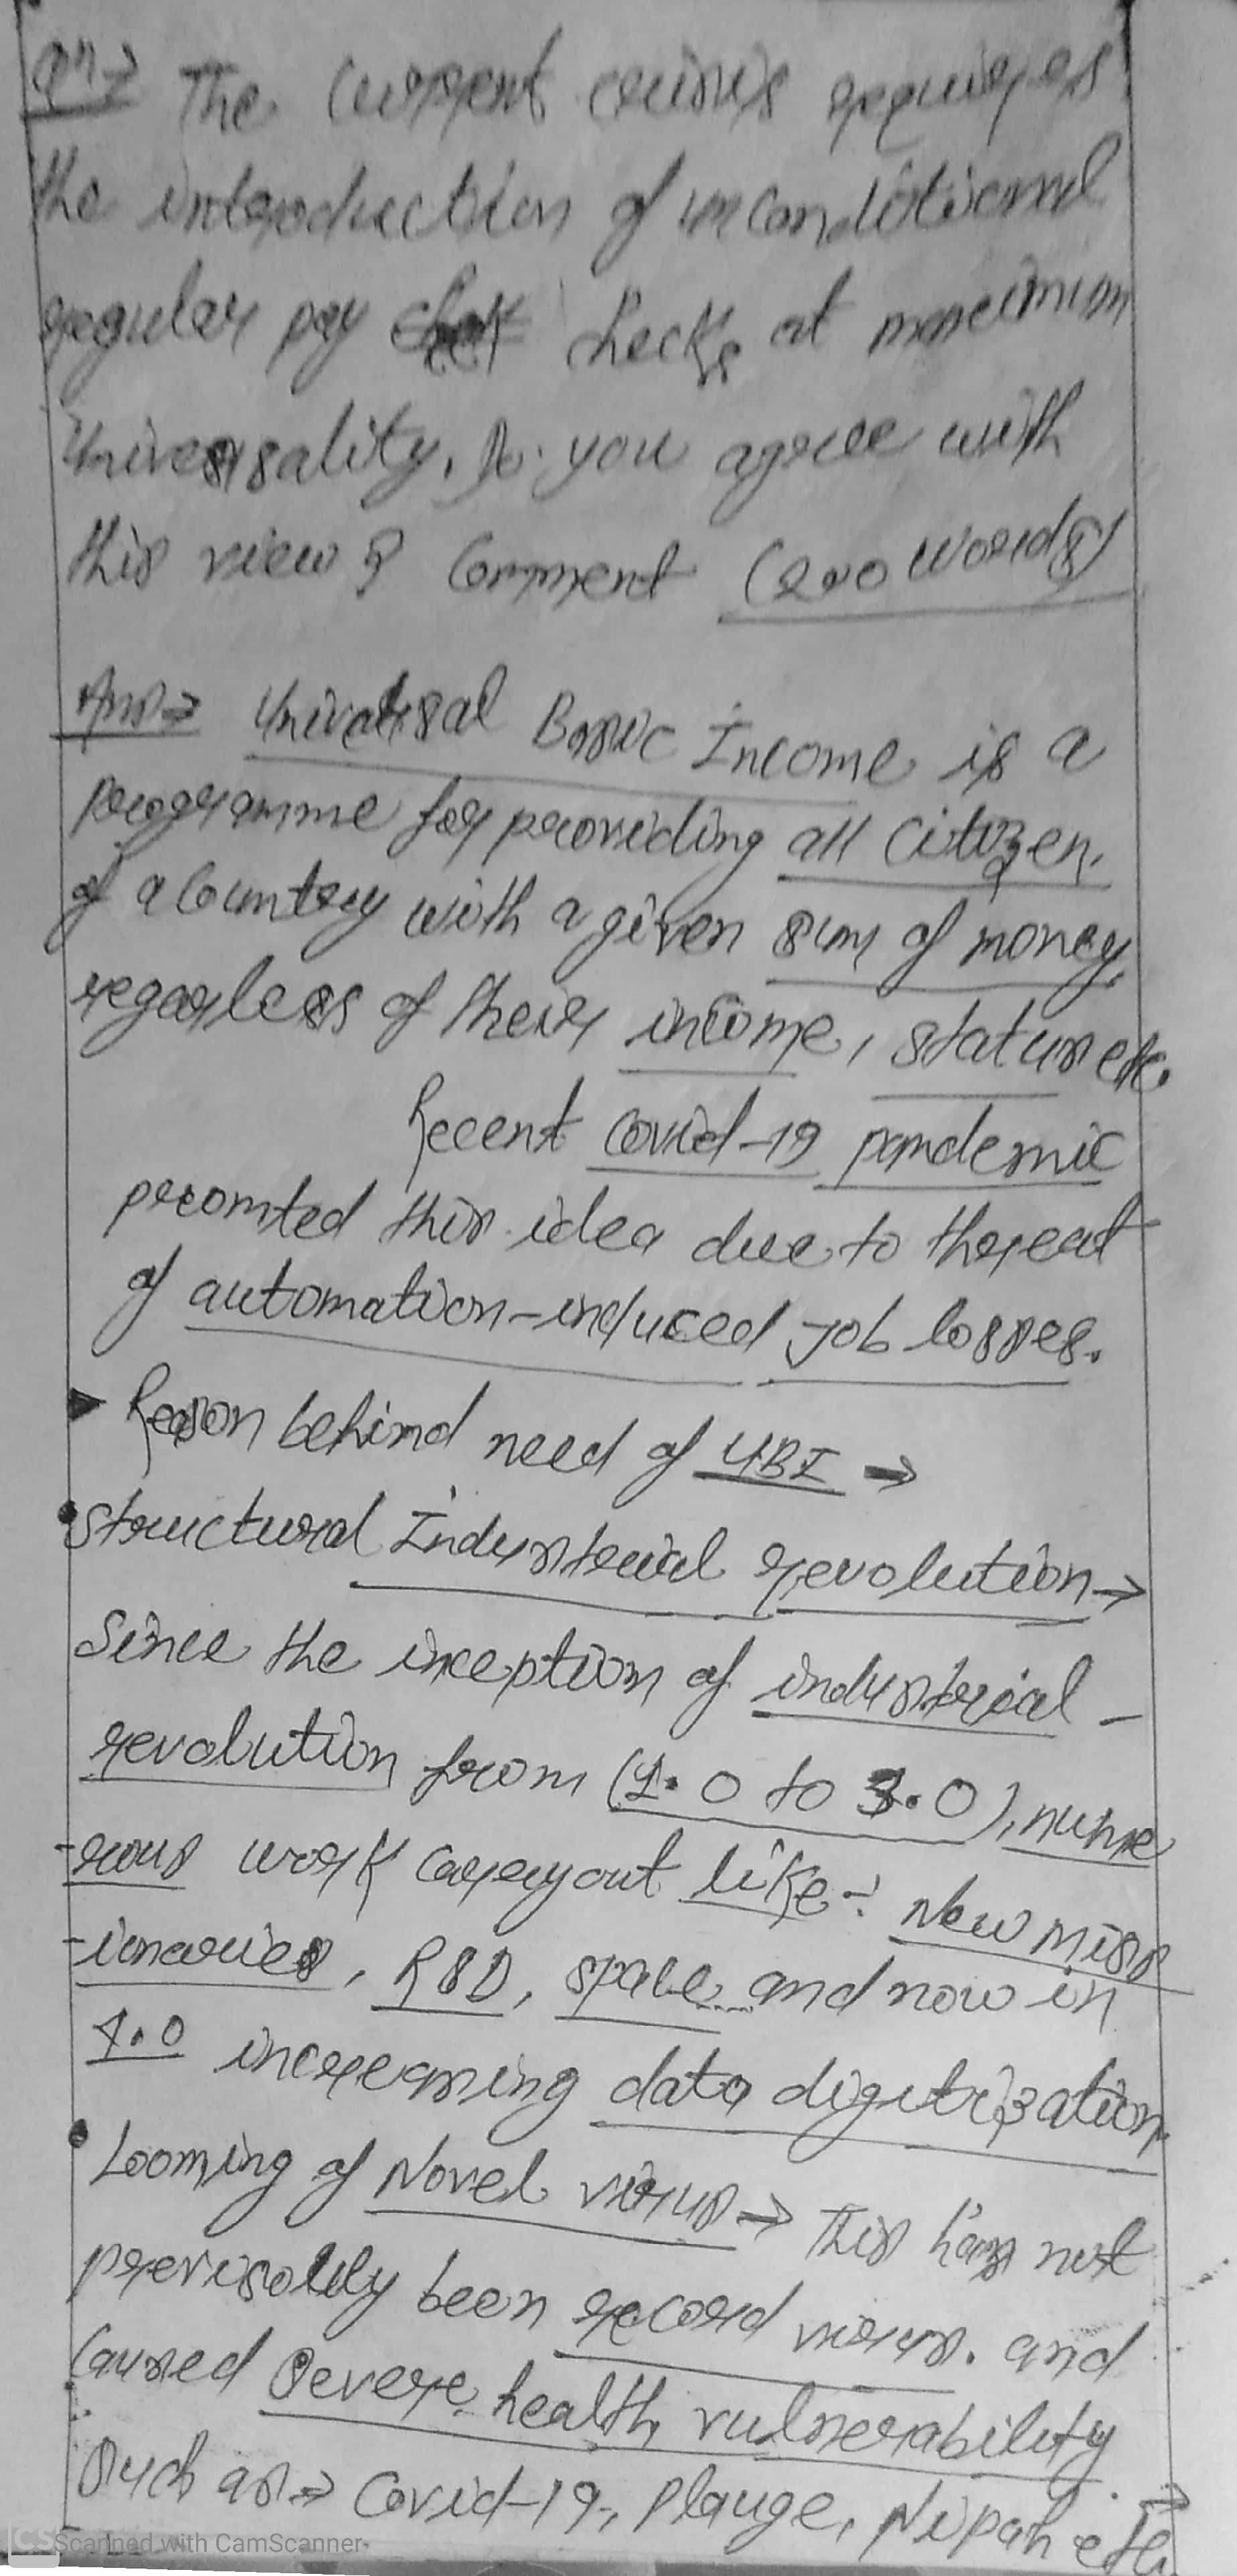 Qn→ The Current crisis requires
the introduction of unconditional
regular pay checks at maximum
Universality. Do you agree with
this view? Comment (200 words)
Ans→ Universal Basic Income is a
programme for providing all citizen.
of a Country with a given sum of money,
regarless of their income, status etc.
Recent Covid-19 pandemic
promted this idea due to threat
of automation-induced job losses.
▸ Reason behind need of UBI →
• Structural Industrial revolution →
Since the inception of industrial -
revolution from (1.0 to 3.0), nume
-rous work carryout like:- New miss
-ionaries, R&D, space and now in
4.0 increasing data digitization.
• Looming of Novel virus → This has not
previsolily been record virus. and
Caused Severe health vulnerability
Such as → Covid-19, Plauge, Nipah etc.
CS Scanned with CamScanner